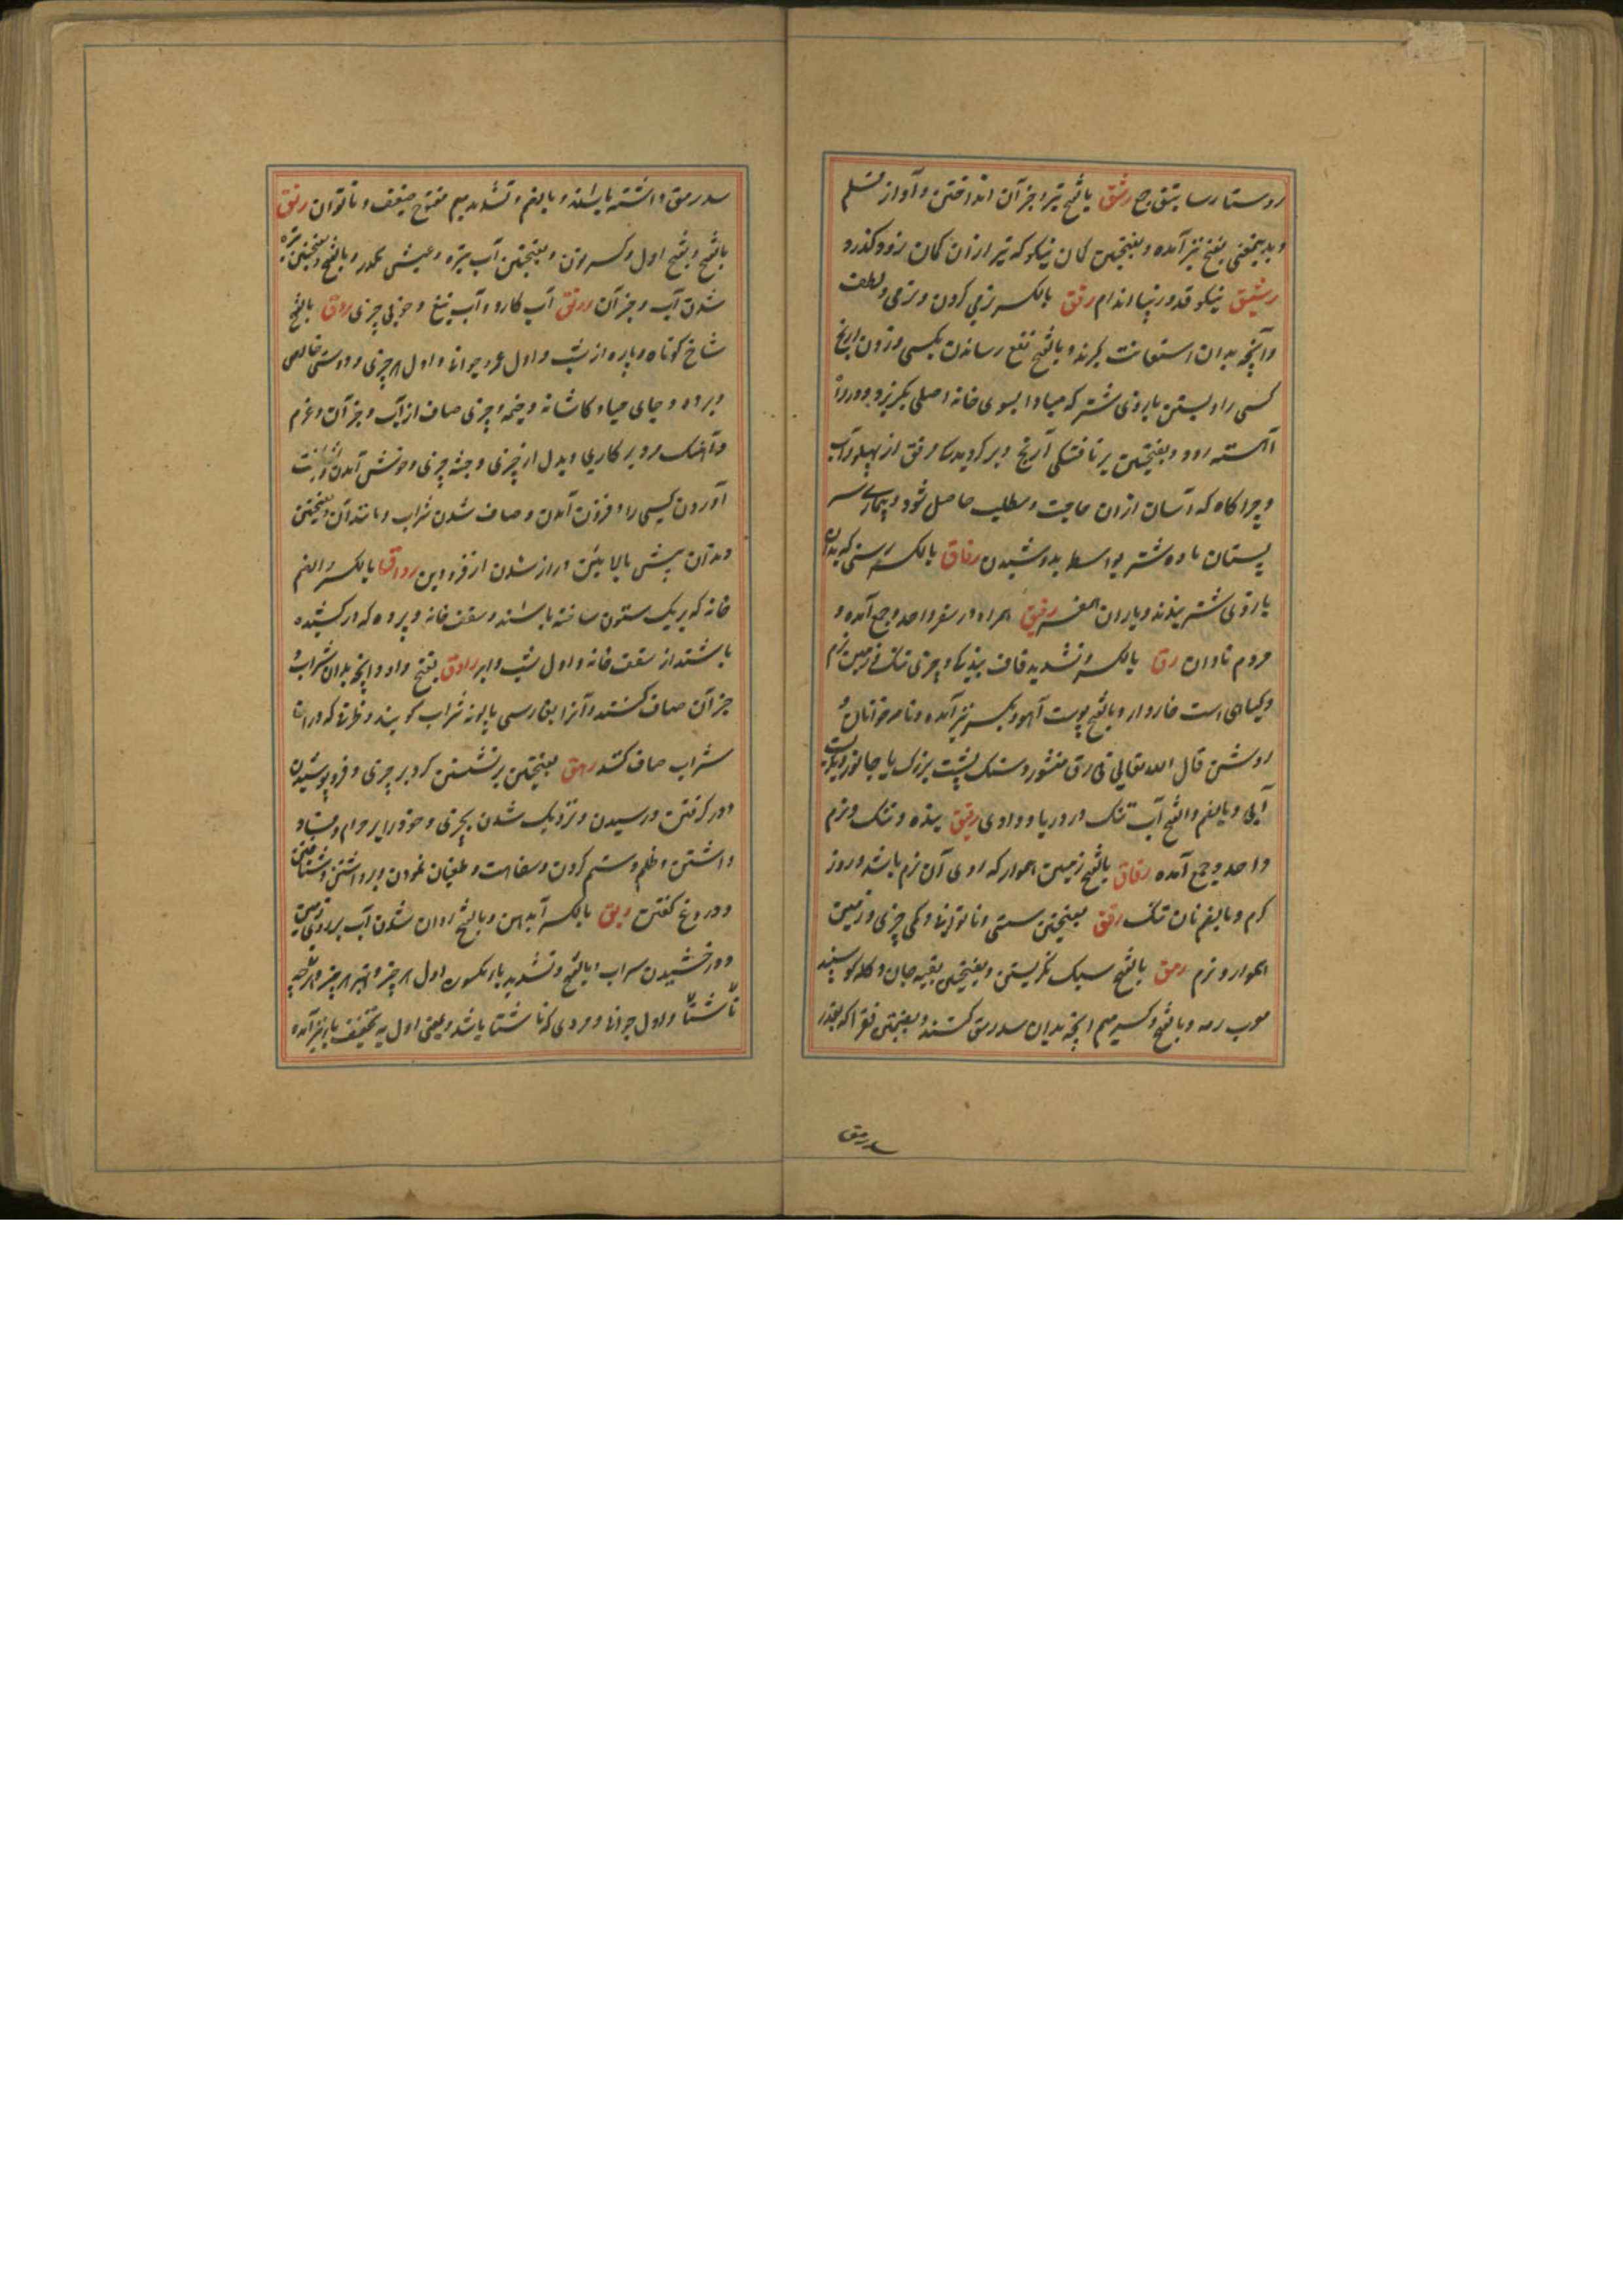 روستا رساتیق ج رشق بالفتح تیر و جز آن انداختن و آواز قلم
و بدینمعنی بفتح نیز آمده و بفتحتین کمان نیکو که تیر ازان کمان زود گذرد
رشیق نیکو قد و زیبا اندام رفق بالکسر نرمی کردن و نرمی و لطف
و آنچه بدان استعانت گیرند و بالفتح نفع رساندن بکسی و زدن آرنج
کسی را و بستن بازوی شتر که مبادا بسوی خانه اصلی بگریزد و
آهسته رود و بفتحتین برتافتگی آرنج و مرفق از پهلو و آب
و چراگاه که آسان ازان حاجت و مطلب حاصل شود و بیماری سر
پستان ماده شتر بواسطه بد دوشیدن رفاق بالکسر رسنی که بدان
بازوی شتر بندند و یاران همسفر رفیق همراه در سفر واحد و جمع آمده و
مردم نادان رق بالکسر و تشدید قاف بندگی و چیزی تنک و زمین نرم
و گیاهی است خاردار و بالفتح پوست آهو و بکسر نیز آمده و نامه خوانان و
روشن قال الله تعالی فی رق منشور و سنگ پشت بزرگ یا جانوریست
آبی و بالضم و الفتح آب تنک در دریا و وادی رقیق بنده و تنک و نرم
واحد و جمع آمده رقاق بالفتح زمین هموار که روی آن نرم باشد و روز
گرم و بالضم نان تنک رقق بفتحتین سستی و ناتوانی و کمی چیزی و زمین
هموار و نرم رمق بالفتح سبک نگریستن و بفتحتین بقیه جان و گله گوسپند
معرب رمه و بالفتح و کسر میم آنچه بدان سد رمق کنند و بفتحتین فقرا که بقدر
سد رمق
سد رمق داشته باشند و بالضم و تشدید میم مفتوح ضعیف و ناتوان رنق
بالفتح و بفتح اول و کسر نون و بفتحتین آب تیره و عیش مکدر و بالفتح و بفتحتین تیره
شدن آب و جز آن رونق آب کار و آب تیغ و خوبی چیزی روق بالفتح
شاخ کوتاه و پاره از شب و اول عمر و جوانی و اول هر چیزی و دوستی خالص
و پرده و جای صیاد کاشانه و خیمه و چیزی صاف از آب و جز آن و عزم
و آهنگ مرد بر کاری و بدل از چیزی و جثه چیزی و خوش آمدن و
آوردن کسی را و فزون آمدن و صاف شدن شراب و مانند آن و بفتحتین
دندان پیش بالائین دراز شدن از فرودین رواق بالکسر و الضم
خانه که بر یک ستون ساخته باشند و سقف خانه و پرده که در کشیده
باشند از سقف خانه و اول شب و ابر راوق بفتح واو و آنچه بدان شراب و
جز آن صاف کنند و آنرا بفارسی پالونه شراب گویند و ظرفی که دران
شراب صاف کنند رهق بفتحتین برنشستن گرد بر چیزی و فرو پوشیدن
و در گرفتن و رسیدن و نزدیک شدن بچیزی و خود را بر حرام و فساد
داشتن و ظلم و ستم کردن و سفاهت و طغیان نمودن و برداشتن و شتافتن
و دروغ گفتن ریق بالکسر آب دهن و بالفتح روان شدن آب بر روی زمین
و درخشیدن سراب و بالفتح و تشدید یاء مکسوره اول هر چیز و بهتر هر چیز و هر چه
ناشتا و اول جوانی و مردی که ناشتا باشد و بمعنی اول به تخفیف یا نیز آمده